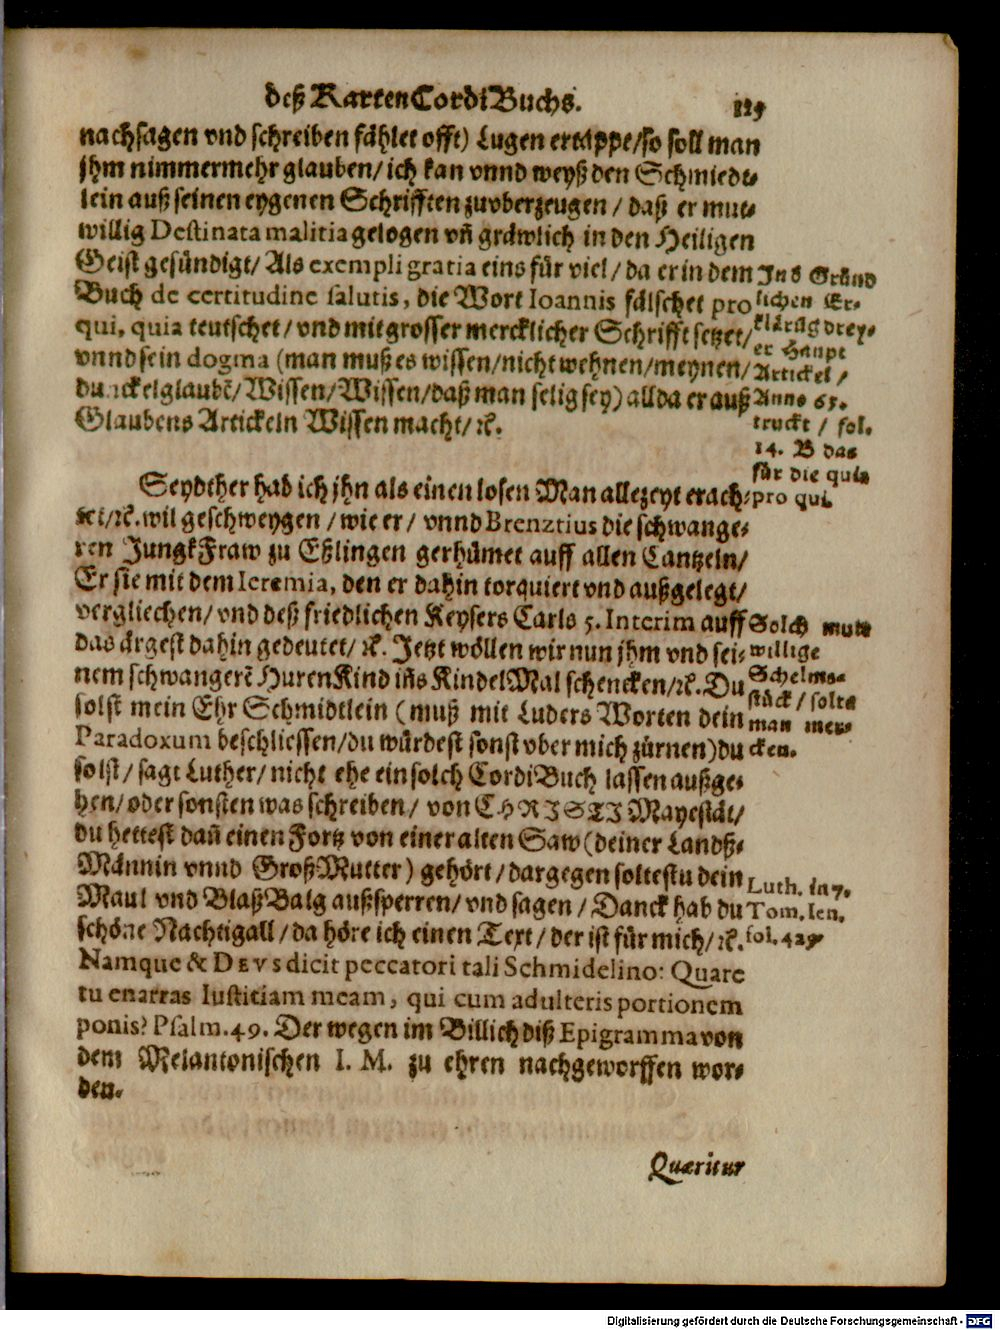 deß KartenCordiBuchs. 125
nachsagen vnd schreiben fåhlet offt) Lugen ertåppe/so soll man
jhm nimmermehr glauben/ ich kan vnnd weyß den Schmiedt⸗
lein auß seinen eygenen Schrifften zuvberzeugen / daß er mut⸗
willig Destinata malitia gelogen vñ gråwlich in den Heiligen
Geist gesündigt/ Als exempli gratia eins für viel / da er in dem
Buch de certitudine salutis, die Wort Ioannis fålschet pro
qui, quia teutschet / vnd mit grosser mercklicher Schrifft setzet/
vnnd sein dogma (man muß es wissen/nicht wehnen/meynen/
du ckelglaubē/Wissen/Wissen/daß man selig sey) allda er auß
Glaubens Artickeln Wissen macht/ ꝛc.
Ins Gründ
lichen Er⸗
klårūg drey⸗
er Haupt
Artickel /
Anno 65.
truckt / fol.
14. B das
für die quia
pro qui.
Seydther hab ich jhn als einen losen Man allezeyt erach⸗
tet/ꝛc. wil geschweygen / wie er / vnnd Brenztius die schwange⸗
ren JungkFraw zu Eßlingen gerhümet auff allen Cantzeln/
Er sie mit dem Ieremia, den er dahin torquiert vnd außgelegt/
vergliechen/ vnd deß friedlichen Keysers Carls 5. Interim auff
das årgest dahin gedeutet/ ꝛc. Jetzt wöllen wir nun jhm vnd sei⸗
nem schwangerē HurenKind iñs KindelMal schencken/ꝛc. Du
solst mein Ehr Schmidtlein (muß mit Luders Worten dein
Paradoxum beschliessen/du würdest sonst vber mich zürnen) du
solst/ sagt Luther/ nicht ehe ein solch CordiBuch lassen außge⸗
hen/ oder sonsten was schreiben/ von CHRISTI Mayeståt/
du hettest dañ einen Fortz von einer alten Saw (deiner Landß⸗
Månnin vnnd GroßMutter) gehört/ dargegen soltestu dein
Maul vnd BlaßBalg außsperren/ vnd sagen / Danck hab du
schöne Nachtigall / da höre ich einen Text / der ist für mich/ ꝛc.
Namque & DEVS dicit peccatori tali Schmidelino: Quare
tu enarras Iustitiam meam, qui cum adulteris portionem
ponis? Psalm. 49. Der wegen im Billich diß Epigramma von
dem Melantonischen I. M. zu ehren nachgeworffen wor⸗
den.
Solch mutt
willige
Schelms⸗
stück / solte
man mer⸗
cken.
Luth. in 7.
Tom. Ien.
fol. 429
Quæritur
Digitalisierung gefördert durch die Deutsche Forschungsgemeinschaft - DFG